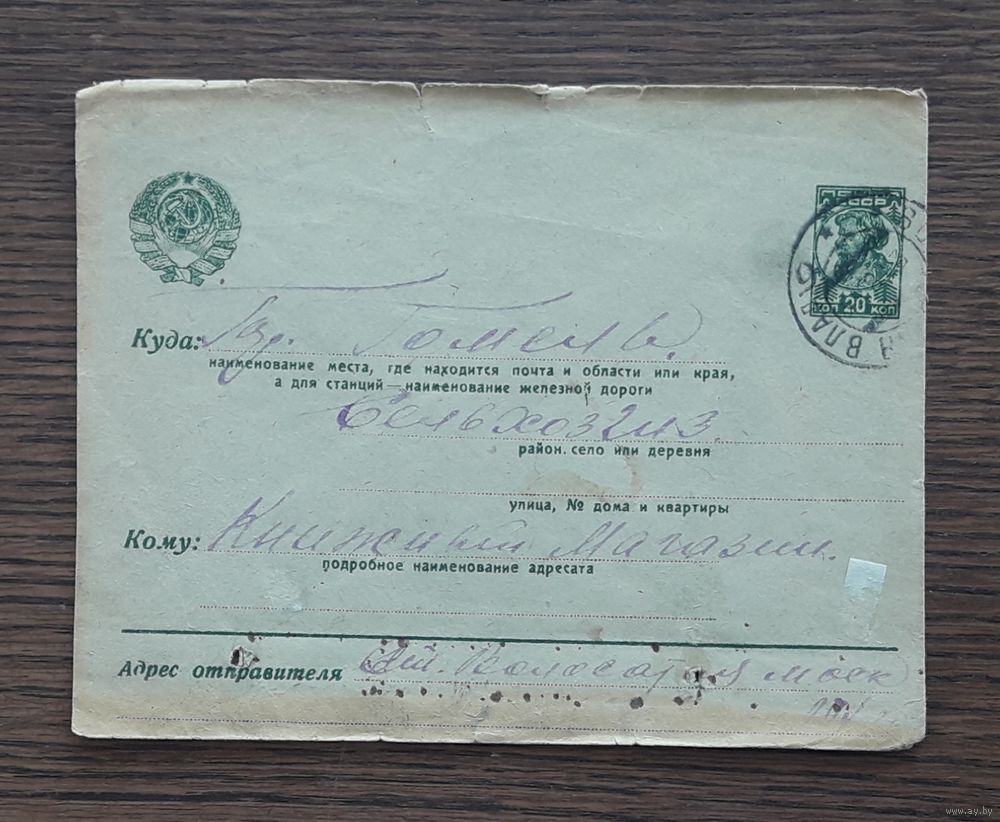 СССР
20
КОП КОП
Куда: гор. Гомель.
наименование места, где находится почта и области или края,
а для станций — наименование железной дороги
Сельхозгиз.
район, село или деревня
улица, № дома и квартиры
Кому: Книжный Магазин.
подробное наименование адресата
Адрес отправителя ст. моск
www.ay.by